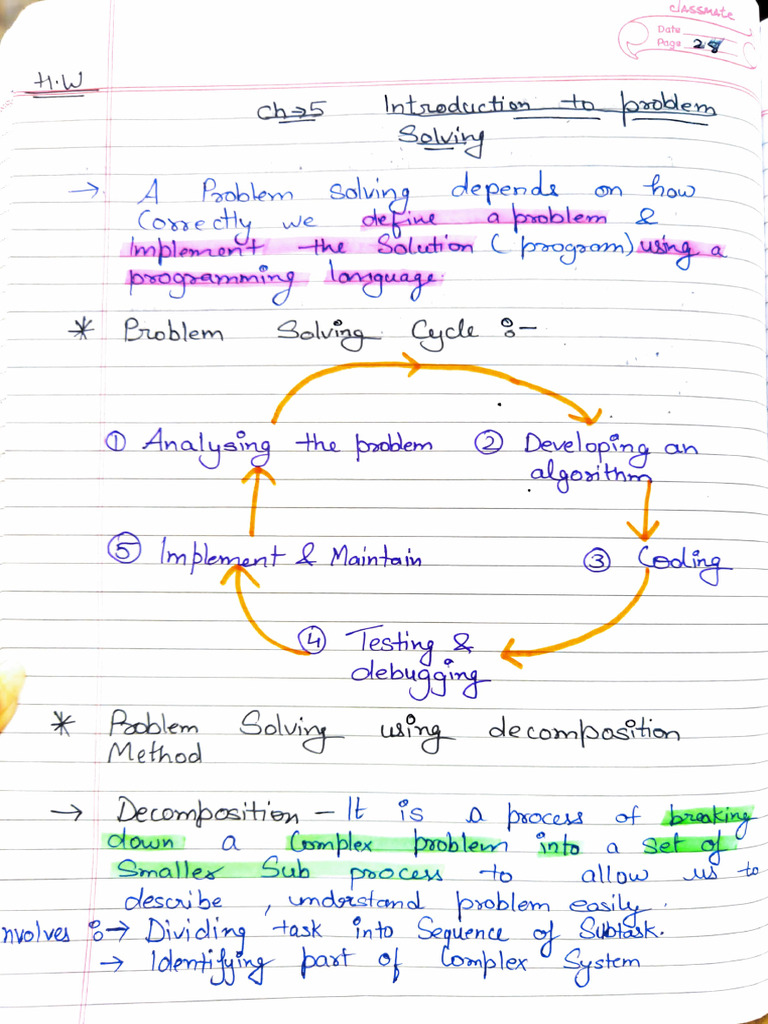 classmate
Date
Page 28
H.W
Ch→5 Introduction to problem
Solving
→ A Problem solving depends on how
Correctly we define a problem &
implement the Solution (program) using a
programming language.
* Problem Solving Cycle :-
① Analysing the problem ② Developing an
algorithm
⑤ Implement & Maintain ③ Coding
④ Testing &
debugging
* Problem Solving using decomposition
Method
→ Decomposition - It is a process of breaking
down a Complex problem into a set of
Smaller Sub process to allow us to
describe, understand problem easily.
nvolves :→ Dividing task into Sequence of Subtask.
→ Identifying part of Complex System